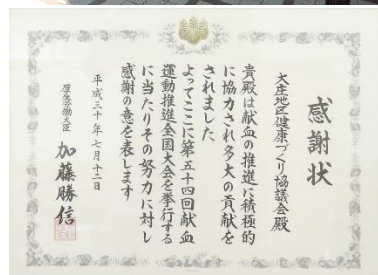 感謝状
大庄地区健康づくり協議会殿
貴殿は献血の推進に積極的
に協力され多大の貢献を
されました
よってここに第五十四回献血
運動推進全国大会を挙行する
に当たりその努力に対し
感謝の意を表します
平成三十年七月十二日
厚生労働大臣 加藤勝信